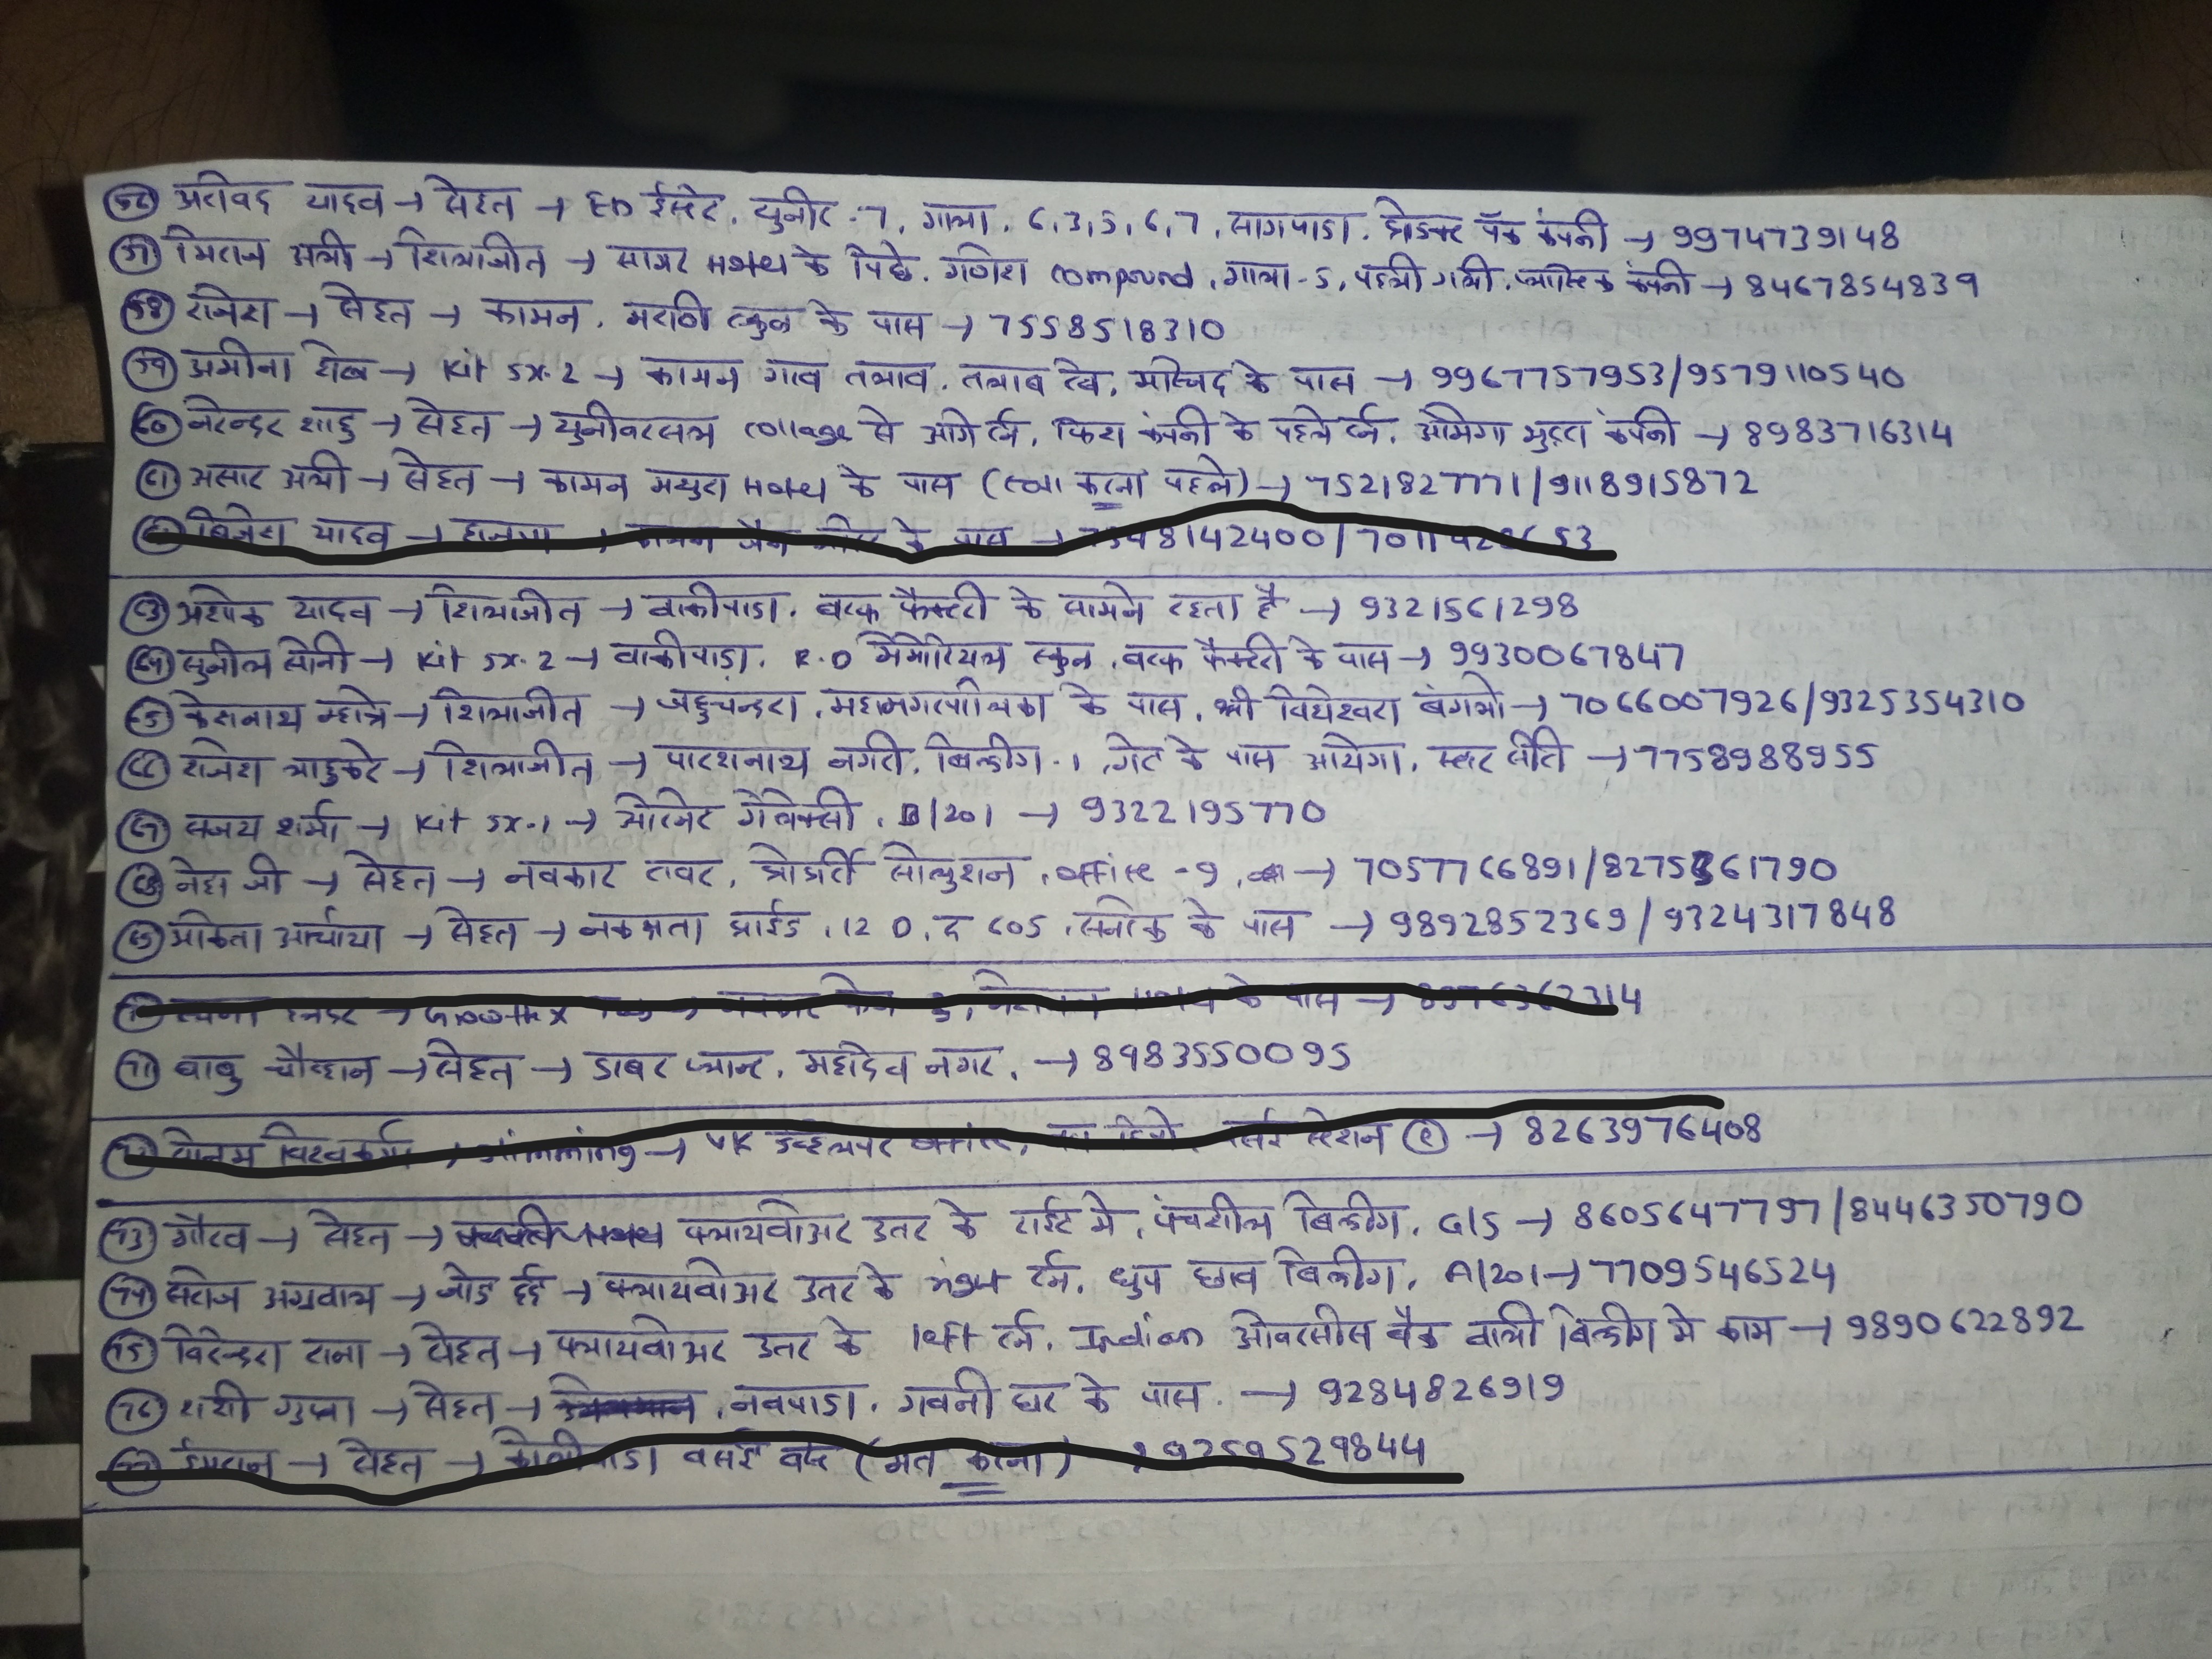 56 अरविंद यादव → सेहत → ईस्टेट, युनीट - 7, गाला, 6,3,5,6,7, सागपाडा, प्रोडक्ट पॅक कंपनी → 9974739148
57 मिराज अली → शिलाजीत → सागर Hotel के पिछे, गणेश compound, गाला - 5, पहली गली, प्लास्टिक कंपनी → 8467854839
58 राजेश → सेहत → कामन, मराठी स्कुल के पास → 7558518310
59 अमीना शेख → Kit 5x-2 → कामन गाव तलाव, तलाब रोड, मस्जिद के पास → 9967757953/9579110540
60 नरेन्द्र शाहु → सेहत → युनीवरसल collage से आगे टर्न, कंपनी के पहले टर्न, ओमेगा कंपनी → 8983716314
61 असार अली → सेहत → कामन मथुरा Hotel के पास ( करना पहले) → 7521827771/9118915872
62 बिजेश यादव → → कामन जैन के पास → 8142400/
63 अशोक यादव → शिलाजीत → वाकीपाडा, बरफ फैक्टरी के सामने रहता है → 9321561298
64 सुनील सोनी → Kit 5x-2 → वाकीपाडा, R.D मेमोरियल स्कुल, बरफ फैक्टरी के पास → 9930067847
65 केसनाथ म्हात्रे → शिलाजीत → जहुचन्द्रा, महानगरपालिका के पास, श्री बंगलो → 7066007926/9325354310
66 राजेश लाडुकरे → शिलाजीत → पारसनाथ नगरी, बिल्डींग - 1, गेट के पास आयेगा, स्टार सीटि → 7758988955
67 संजय शर्मा → Kit 5x-1 → ओरनेट गॅलेक्सी, B/201 → 9322195770
68 नेहा जी → सेहत → नवकार टावर, प्रोपर्टी सोल्युशन, office - 9, → 7057766891/8275361790
69 अंकिता आर्चाया → सेहत → नक्षत्रा प्राईड, 12 D, द 605, के पास → 9892852369/9324317848
70 → → 3, के पास → 8976362314
71 बाबु चौव्हान → सेहत → डाबर प्लान्ट, महादेव नगर, → 8983550095
72 विश्वकर्मा → slimming → VK डेव्हलपर office, वसई स्टेशन (E) → 8263976408
73 गौरव → सेहत → फ्लायवोअर उतर के राईट मे, पंचशील बिल्डींग, G/5 → 8605647797/8446350790
74 सरोज अग्रवाल → जोड दर्द → फ्लायवोअर उतर के right टर्न, धुप छाव बिल्डींग, A/201 → 7709546524
75 विरेन्द्रा राना → सेहत → फ्लायवोअर उतर के left टर्न, Indian ओवरसीस बैंक वाली बिल्डींग मे काम → 9890622892
76 शशी गुप्ता → सेहत → , नवपाडा, गवनी घर के पास. → 9284826919
77 ईमरान → सेहत → कोलीवाडा वसई (मत करना) → 9259529844